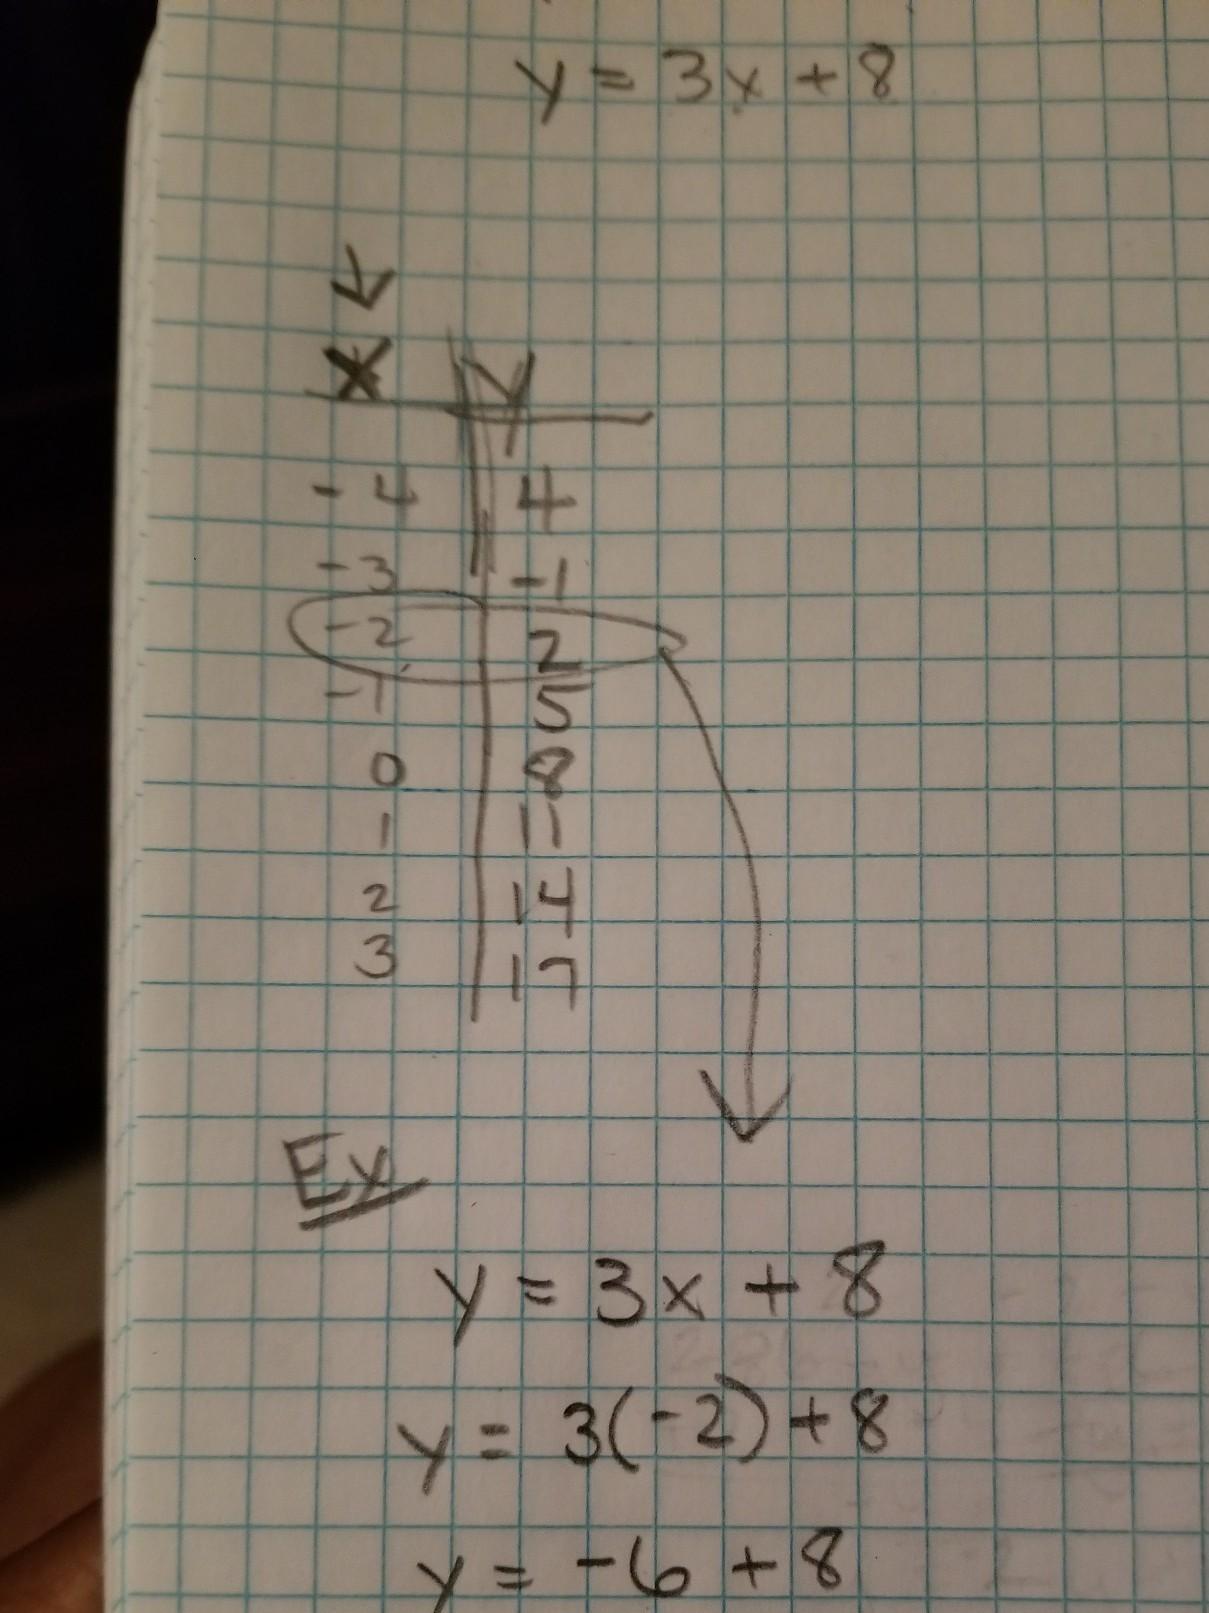 y = 3x + 8
x y
-4 4
-3 -1
-2 2
-1 5
0 8
1 11
2 14
3 17
Ex
y = 3x + 8
y = 3(-2) + 8
y = -6 + 8